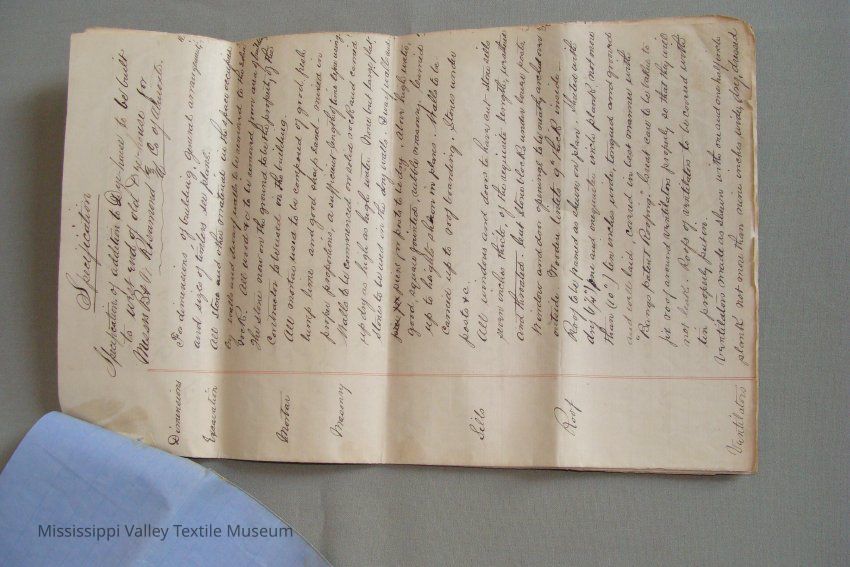 Specification
Specification of addition to Dye-house to be built
to west end of old Dye-house for
Messrs B & W Rosamond & Co of Almonte.
Dimensions For dimensions of building, general arrangement,
and sizes of timbers see plans.
Excavation All stone and other material in the space occupied
by walls and inside of walls to be removed to the
rock. All wood &c to be removed from area of building
The stone now on the ground to be the property of the
Contractor to be used in the building.
Mortar All mortar used to be composed of good, fresh
lump lime and good sharp sand mixed in
proper proportions, a sufficient length of time before using
Masonry Walls to be commenced on solid rock and carried
up dry as high as high water. None but large flat
stones to be used in the dry walls. Dwarf walls and
piers for posts to be dry. Above high water,
good, square jointed, rubble masonry, carried
up to heights shewn in plans. Walls to be
carried up to roof boarding. Stones under
posts &c.
Sills All windows and doors to have cut stone sills
seven inches thick, of the requisite lengths,
and throated. Cut stone blocks under door posts
Window and door openings to be neatly arched over
outside. Wooden lintels 9" thick inside.
Roof Roof to be framed as shewn on plan, sheeted with
dry 1¼" pine and one quarter inch plank not more
than (10") ten inches wide, tongued and grooved
and well laid, covered in best manner with
"Bangs patent Roofing." Great care to be taken to
fit roof around ventilators properly so that they will
not leak. Roofs of ventilators to be covered with
tin properly put on.
Ventilators Ventilators made as shewn with one and one half inch
plank not more than nine inches wide, dry, dressed
Mississippi Valley Textile Museum